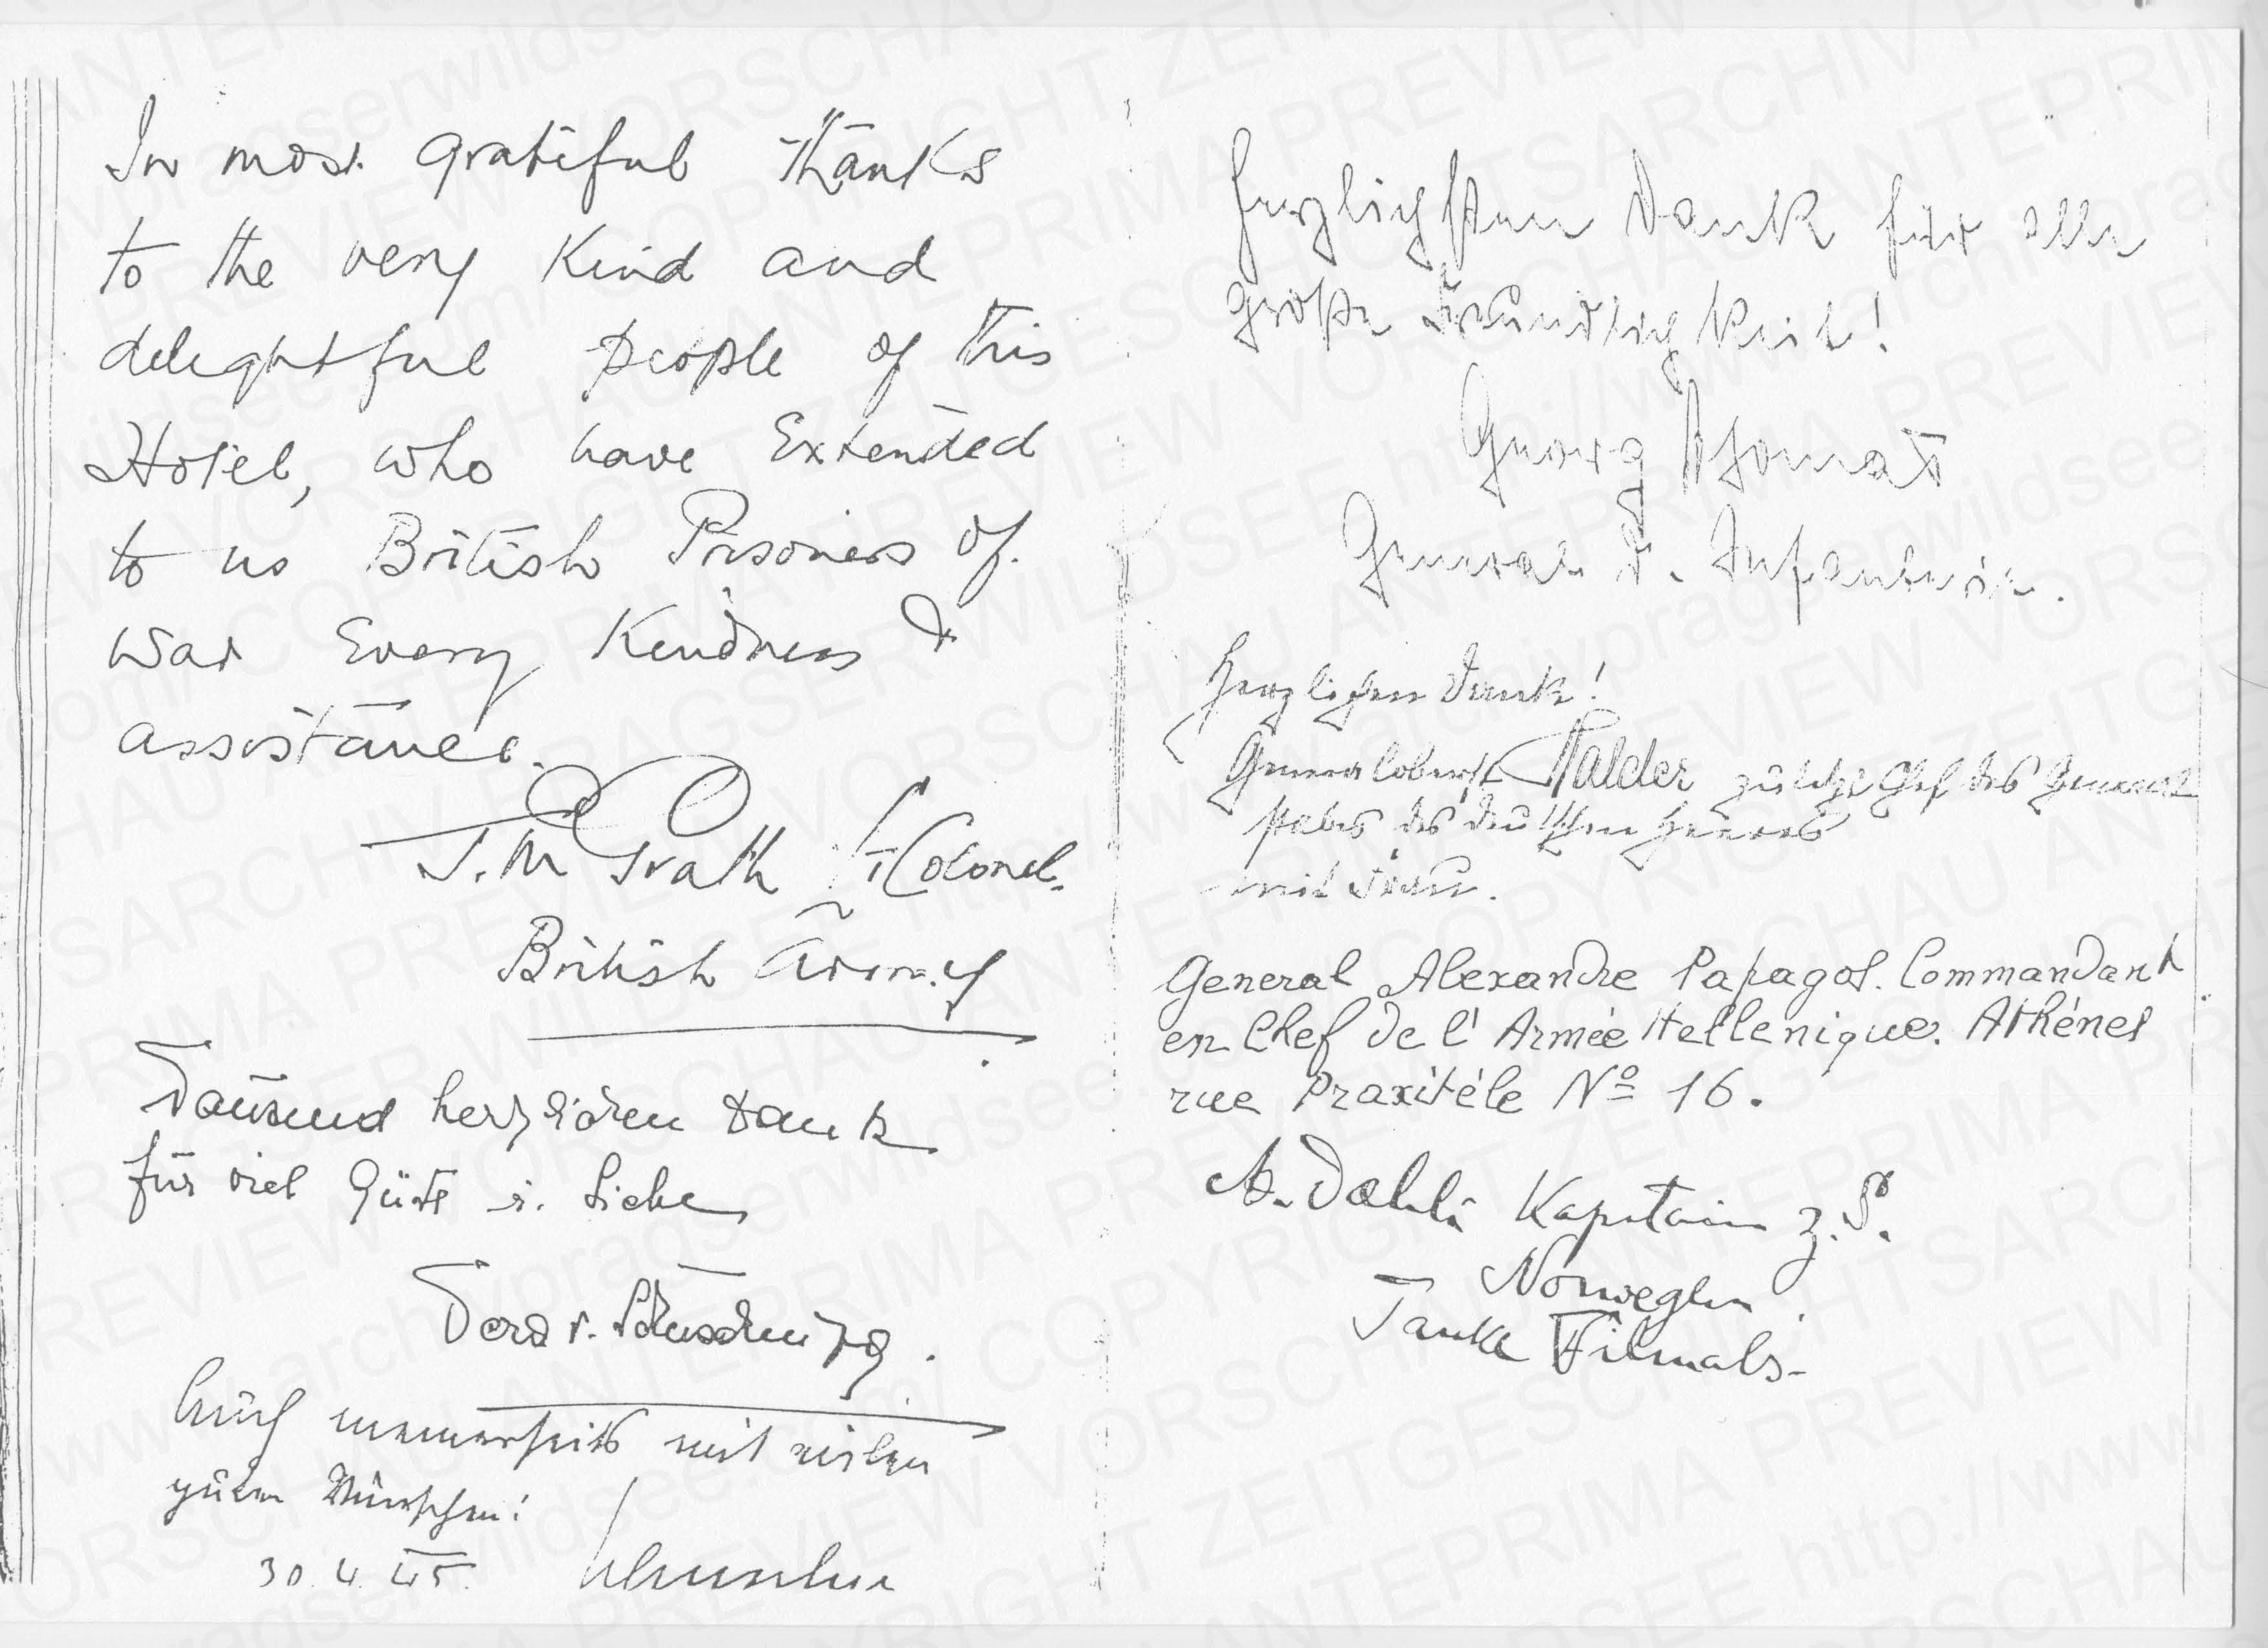 In most grateful thanks
to the very kind and
delightful people of this
Hotel, who have Extended
to us British Prisoners of
war Every Kindness &
assistance.
J. McGrath Lt Colonel.
British Army
Tausend herzlichen Dank
für viel Güte u. Liebe
v. Schuschnigg.
Auch meinerseits mit vielen
guten Wünschen!
30.4.45.
Herzlichsten Dank für alle
große Freundlichkeit!
Georg Thomas
General d. Infanterie.
Herzlichen Dank!
Generaloberst Halder zuletzt Chef des General
stabes des deutschen Heeres
mit Frau.
General Alexandre Papagos. Commandant
en Chef de l'Armée Hellenique. Athénes
rue Praxitéle Nº 16.
Kapitain z. S.
Norwegen.